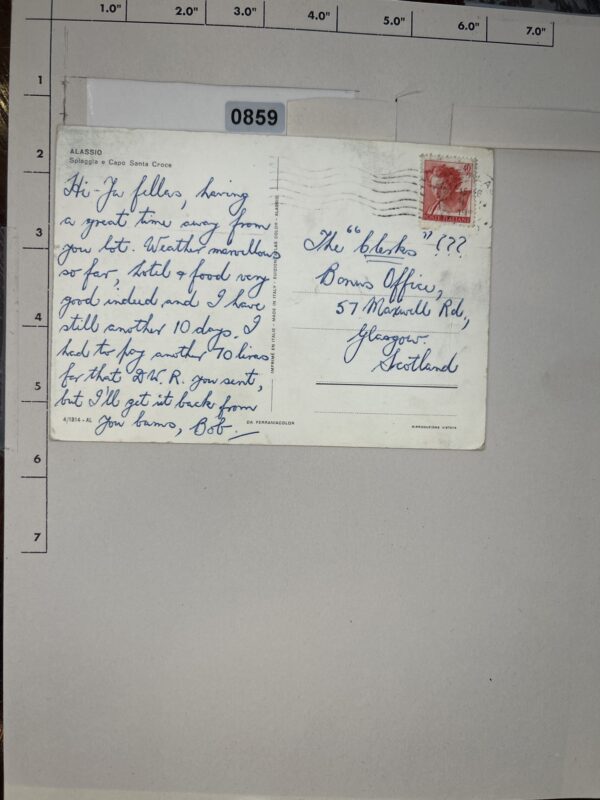 1.0" 2.0" 3.0" 4.0" 5.0" 6.0" 7.0"
1
2
3
4
5
6
7
0859
ALASSIO
Spiaggia e Capo Santa Croce
Hi-Ya fellas, having
a great time away from
you lot. Weather marvellous
so far, hotel & food very
good indeed and I have
still another 10 days. I
had to pay another 70 liras
for that D.W.R. you sent,
but I'll get it back from
you bums, Bob.
4/1814 - AL
DA FERRANIACOLOR
IMPRIMÉ EN ITALIE - MADE IN ITALY
COLOR - ALASSIO
POSTE ITALIANE
The "Clerks" (??
Bonus Office,
57 Maxwell Rd.,
Glasgow.
Scotland
RIPRODUZIONE VIETATA